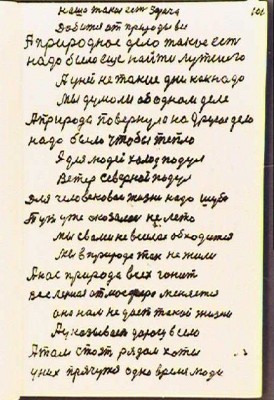 наша такая есть задача
101
Добится от природы все
А природное дело такое есть
надо было еще найти лутшего
А у ней не такие дни как надо
Мы думали об одном деле
А природа повернула на другое дело
надо было чтобы тепло
А для людей холод подул
Ветер северной подул
для человеческой жизни надо шуба
А тут уже оказалась не лето
мы с вами не в силах обходится
Мы в природе так не жили
А нас природа всех гонит
вселенная атмосфера меняется
она нам не дает такой жизни
А указывает дорогу в село
А там стоят рядом хоти
у них прячутся одно время люди